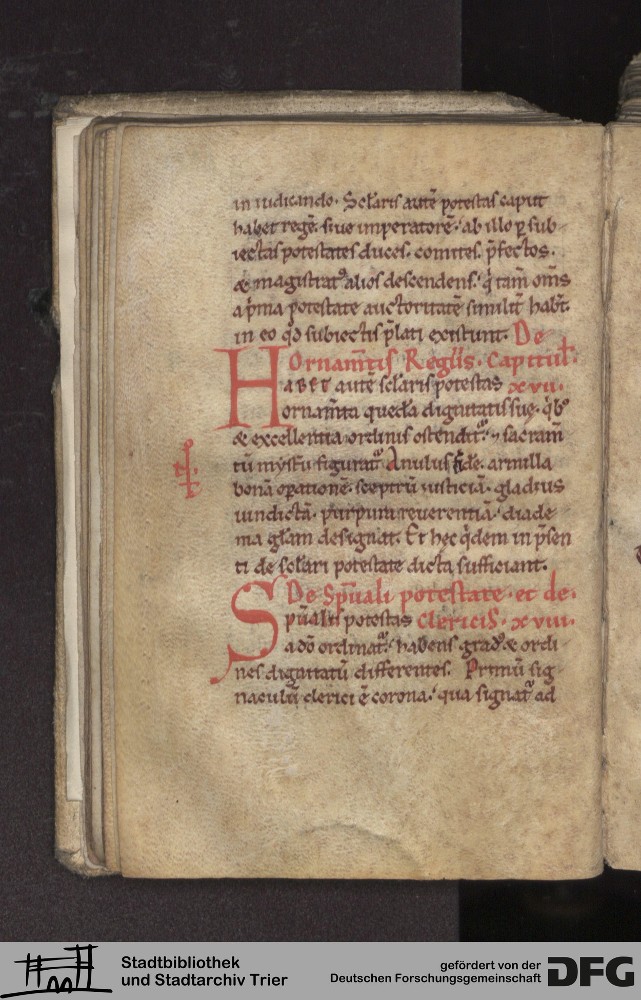 in iudicando. Sclaris aute̅ potestas caput
habet rege̅. siue imperatore̅. ab illo ꝑ sub
iectas potestates duces. comites. p̅fectos.
& magistratꝰ alios descendens. q̇ tam̅ om̅s
a p̍ma potestate auctoritate̅ similit̅ hab̅t.
in eo qd̅ subiectis p̅lati existunt. De
Ornam̅tis Regl̅is. Capitul̅.
Habet aute̅ scl̅aris potestas xvii.
ornam̅ta queda̅ dignitatis suę. q̍bꝰ
& excellentia ordinis ostendit̅. & sacram̅
tu̅ mysticu̅ figurat̅. Anulus fide̅. armilla
bona̅ oꝑatione̅. sceptru̅ iusticia̅. gladius
uindicta̅. purpura reuerentia̅. diade
ma gl̅am designat. Et hęc q̍dem in p̅sen
ti de scl̅ari potestate dicta sufficiant.
De Sp̅uali potestate. et de.
Sp̅ualis potestas Clericis. xviii.
ado̅ ordinat̅. habens gradꝰ. & ordi
nes dignitatu̅ differentes. Primu̅ sig
naculu̅ clerici e̅ corona. qua signat̅ ad
Stadtbibliothek
und Stadtarchiv Trier
gefördert von der
Deutschen Forschungsgemeinschaft
DFG